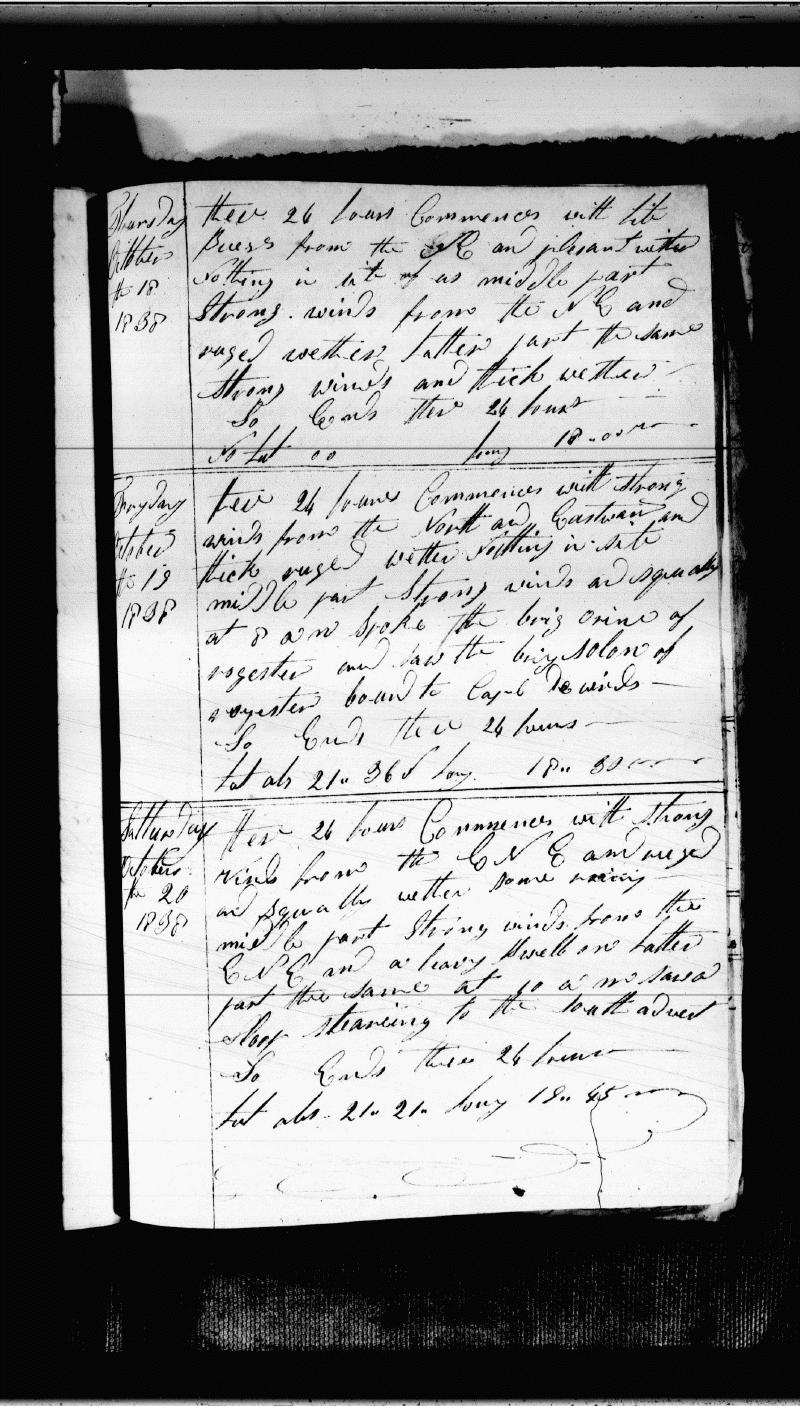 Thursday
October
the 18
1838
thes 24 hours Commences with lite
Breess from the NE and plesant wether
nothing in site of us middle part
Strong winds from the NE and
ruged wether latter part the same
strong winds and thick wether
So Ends thes 24 hours
No lat 00 long 18..00
Fryday
October
the 19
1838
thes 24 hours Commences with strong
winds from the North and Eastward and
thick ruged wether Nothing in site
middle part Strong winds and squally
at 8 a m Spoke the brig orine of
rogester and saw the brig solon of
rogester bound to Cape de virds
So Ends thes 24 hours
Lat obs 21.. 36 long 18.. 30
Satturday
October
the 20
1838
thes 24 hours Commences with strong
winds from the E N E and ruged
and squally wether some
middle part Strong winds from the
E N E and a heavy Swell on latter
part the same at 10 a m saw a
sloop stearing to the south
So Ends these 24 hours
Lat obs 21.. 21.. long 18.. 45